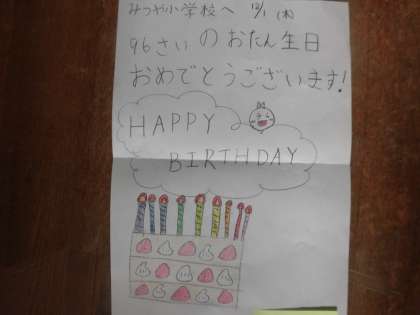 みつや小学校へ 12/1 (木)
96さいのおたん生日
おめでとうございます!
HAPPY
BIRTHDAY